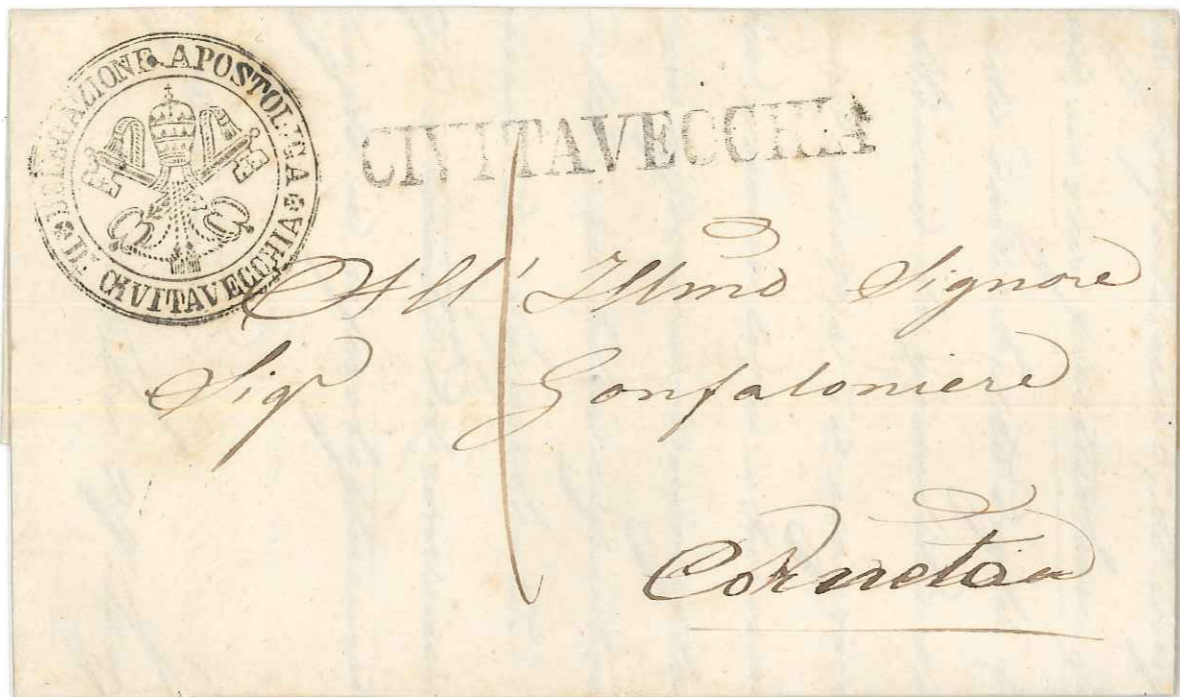 DELEGAZIONE APOSTOLICA
DI CIVITAVECCHIA
CIVITAVECCHIA
All' Illmo Signore
Sigr Gonfaloniere
Corneto